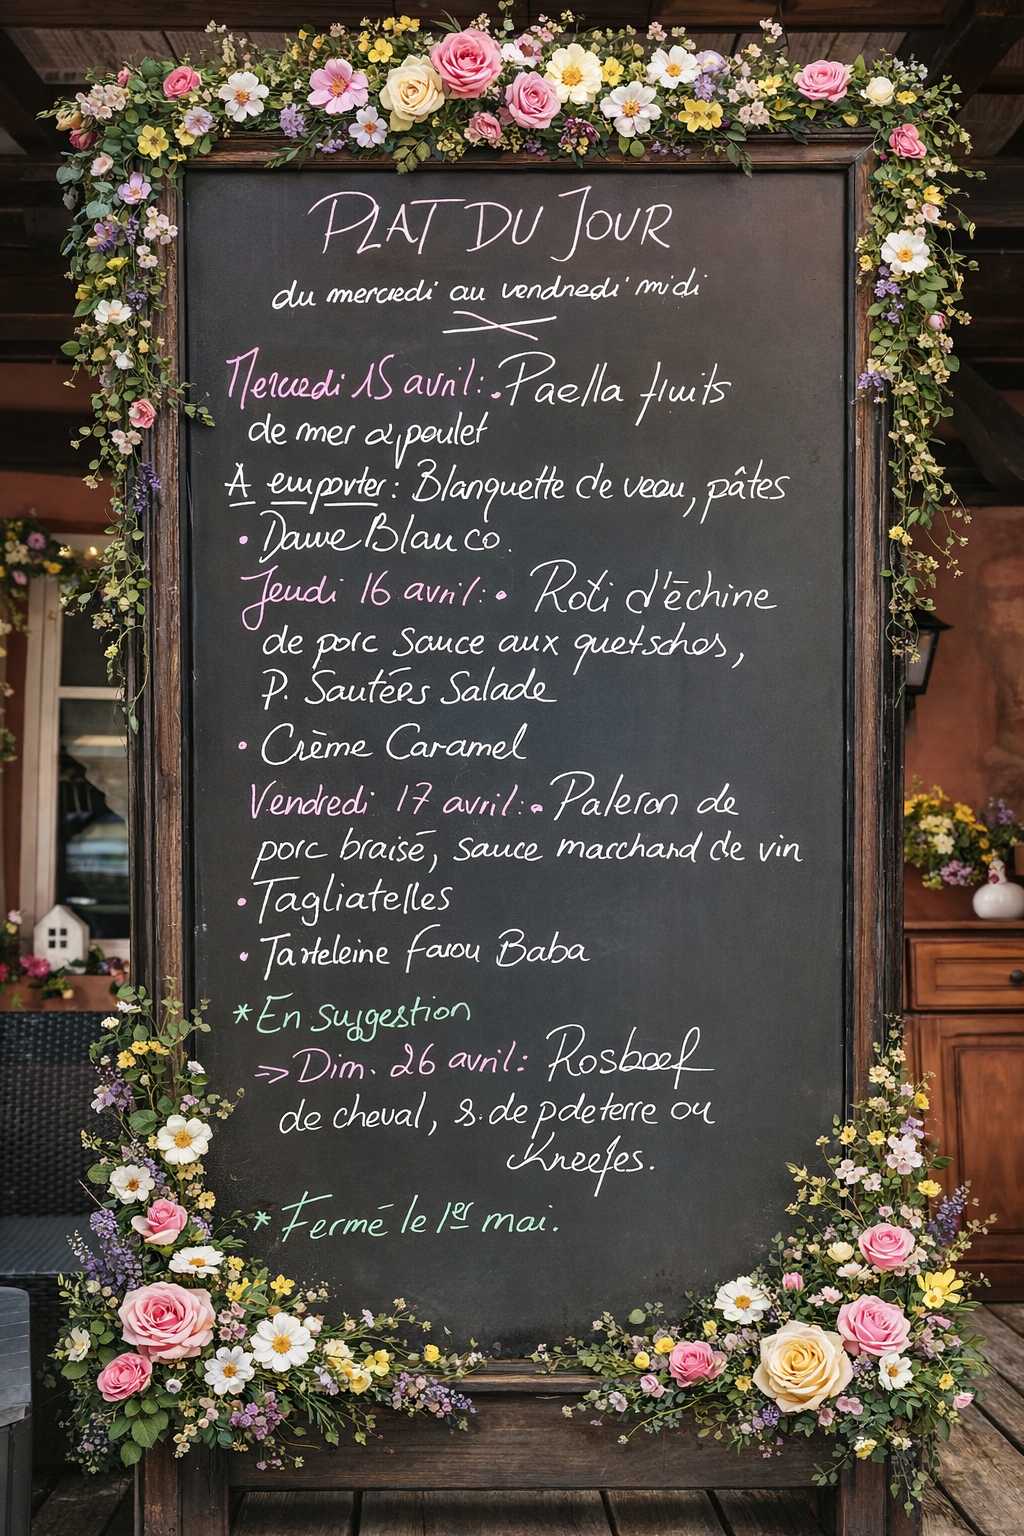 PLAT DU JOUR
du mercredi au vendredi midi
Mercredi 15 avril: • Paella fruits
de mer & poulet
A emporter: Blanquette de veau, pâtes
• Dame Blanco.
Jeudi 16 avril: • Roti d'échine
de porc Sauce aux quetsches,
P. Sautées Salade
• Crème Caramel
Vendredi 17 avril: • Paleron de
porc braisé, sauce marchand de vin
• Tagliatelles
• Tarteleine Farou Baba
* En suggestion
-> Dim. 26 avril: Rosbeef
de cheval, s. de pdeterre ou
Kneefes.
* Fermé le 1er mai.